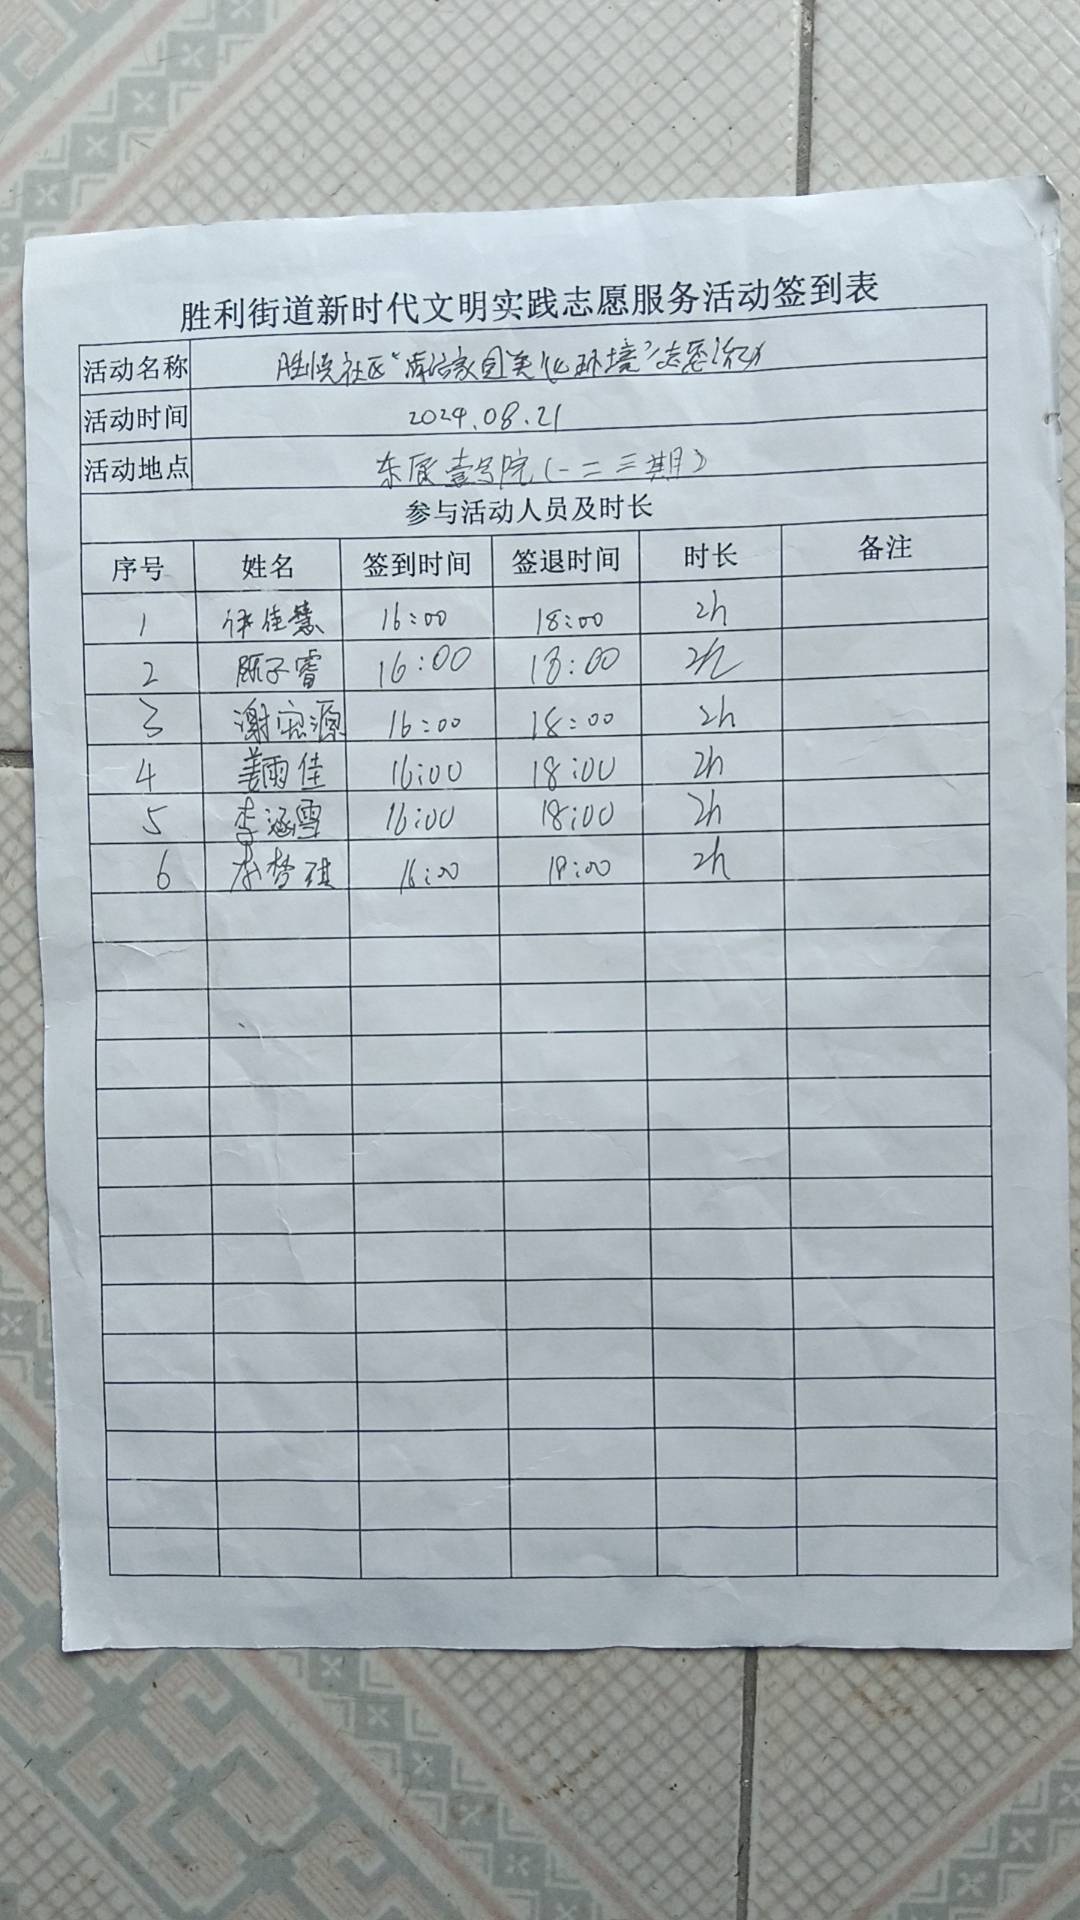 胜利街道新时代文明实践志愿服务活动签到表
活动名称 胜悦社区“清洁家园美化环境”志愿活动
活动时间 2024.08.21
活动地点 东辰壹号院(一二三期)
参与活动人员及时长
序号 姓名 签到时间 签退时间 时长 备注
1 佳慧 16:00 18:00 2h
2 子睿 16:00 18:00 2h
3 谢宏源 16:00 18:00 2h
4 姜雨佳 16:00 18:00 2h
5 李涵雪 16:00 18:00 2h
6 李梦琪 16:00 18:00 2h